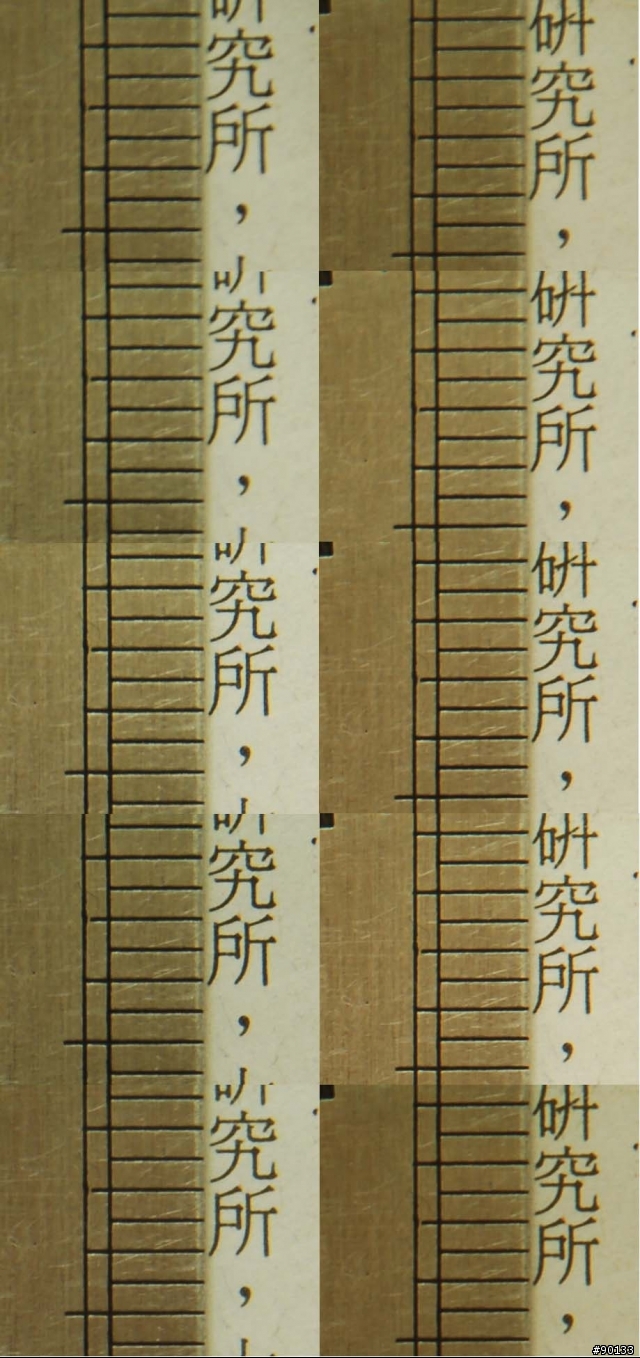 研究所，
研究所，
研究所，
研究所，
研究所，
研究所，
研究所，
研究所，
研究所，
研究所，
#90133